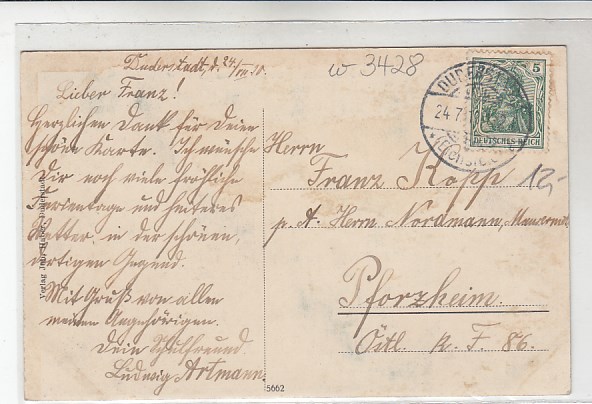 Duderstadt, d. 24/VII 10.
Lieber Franz!
Herzlichen Dank für Deine
schöne Karte. Ich wünsche
Dir noch viele fröhliche
Ferientage und heiteres
Wetter in der schönen,
dortigen Gegend.
Mit Gruß von allen
meinen Angehörigen.
Dein Schulfreund.
Ludwig Artmann.
w 3428
DUDERST
24.7.10
(EICHSFELD)
5
DEUTSCHES REICH
Herrn
Franz Kopp
12,-
p. A. Herrn Nordmann,
Pforzheim.
Östl. K. F. 86.
Verlag
5662